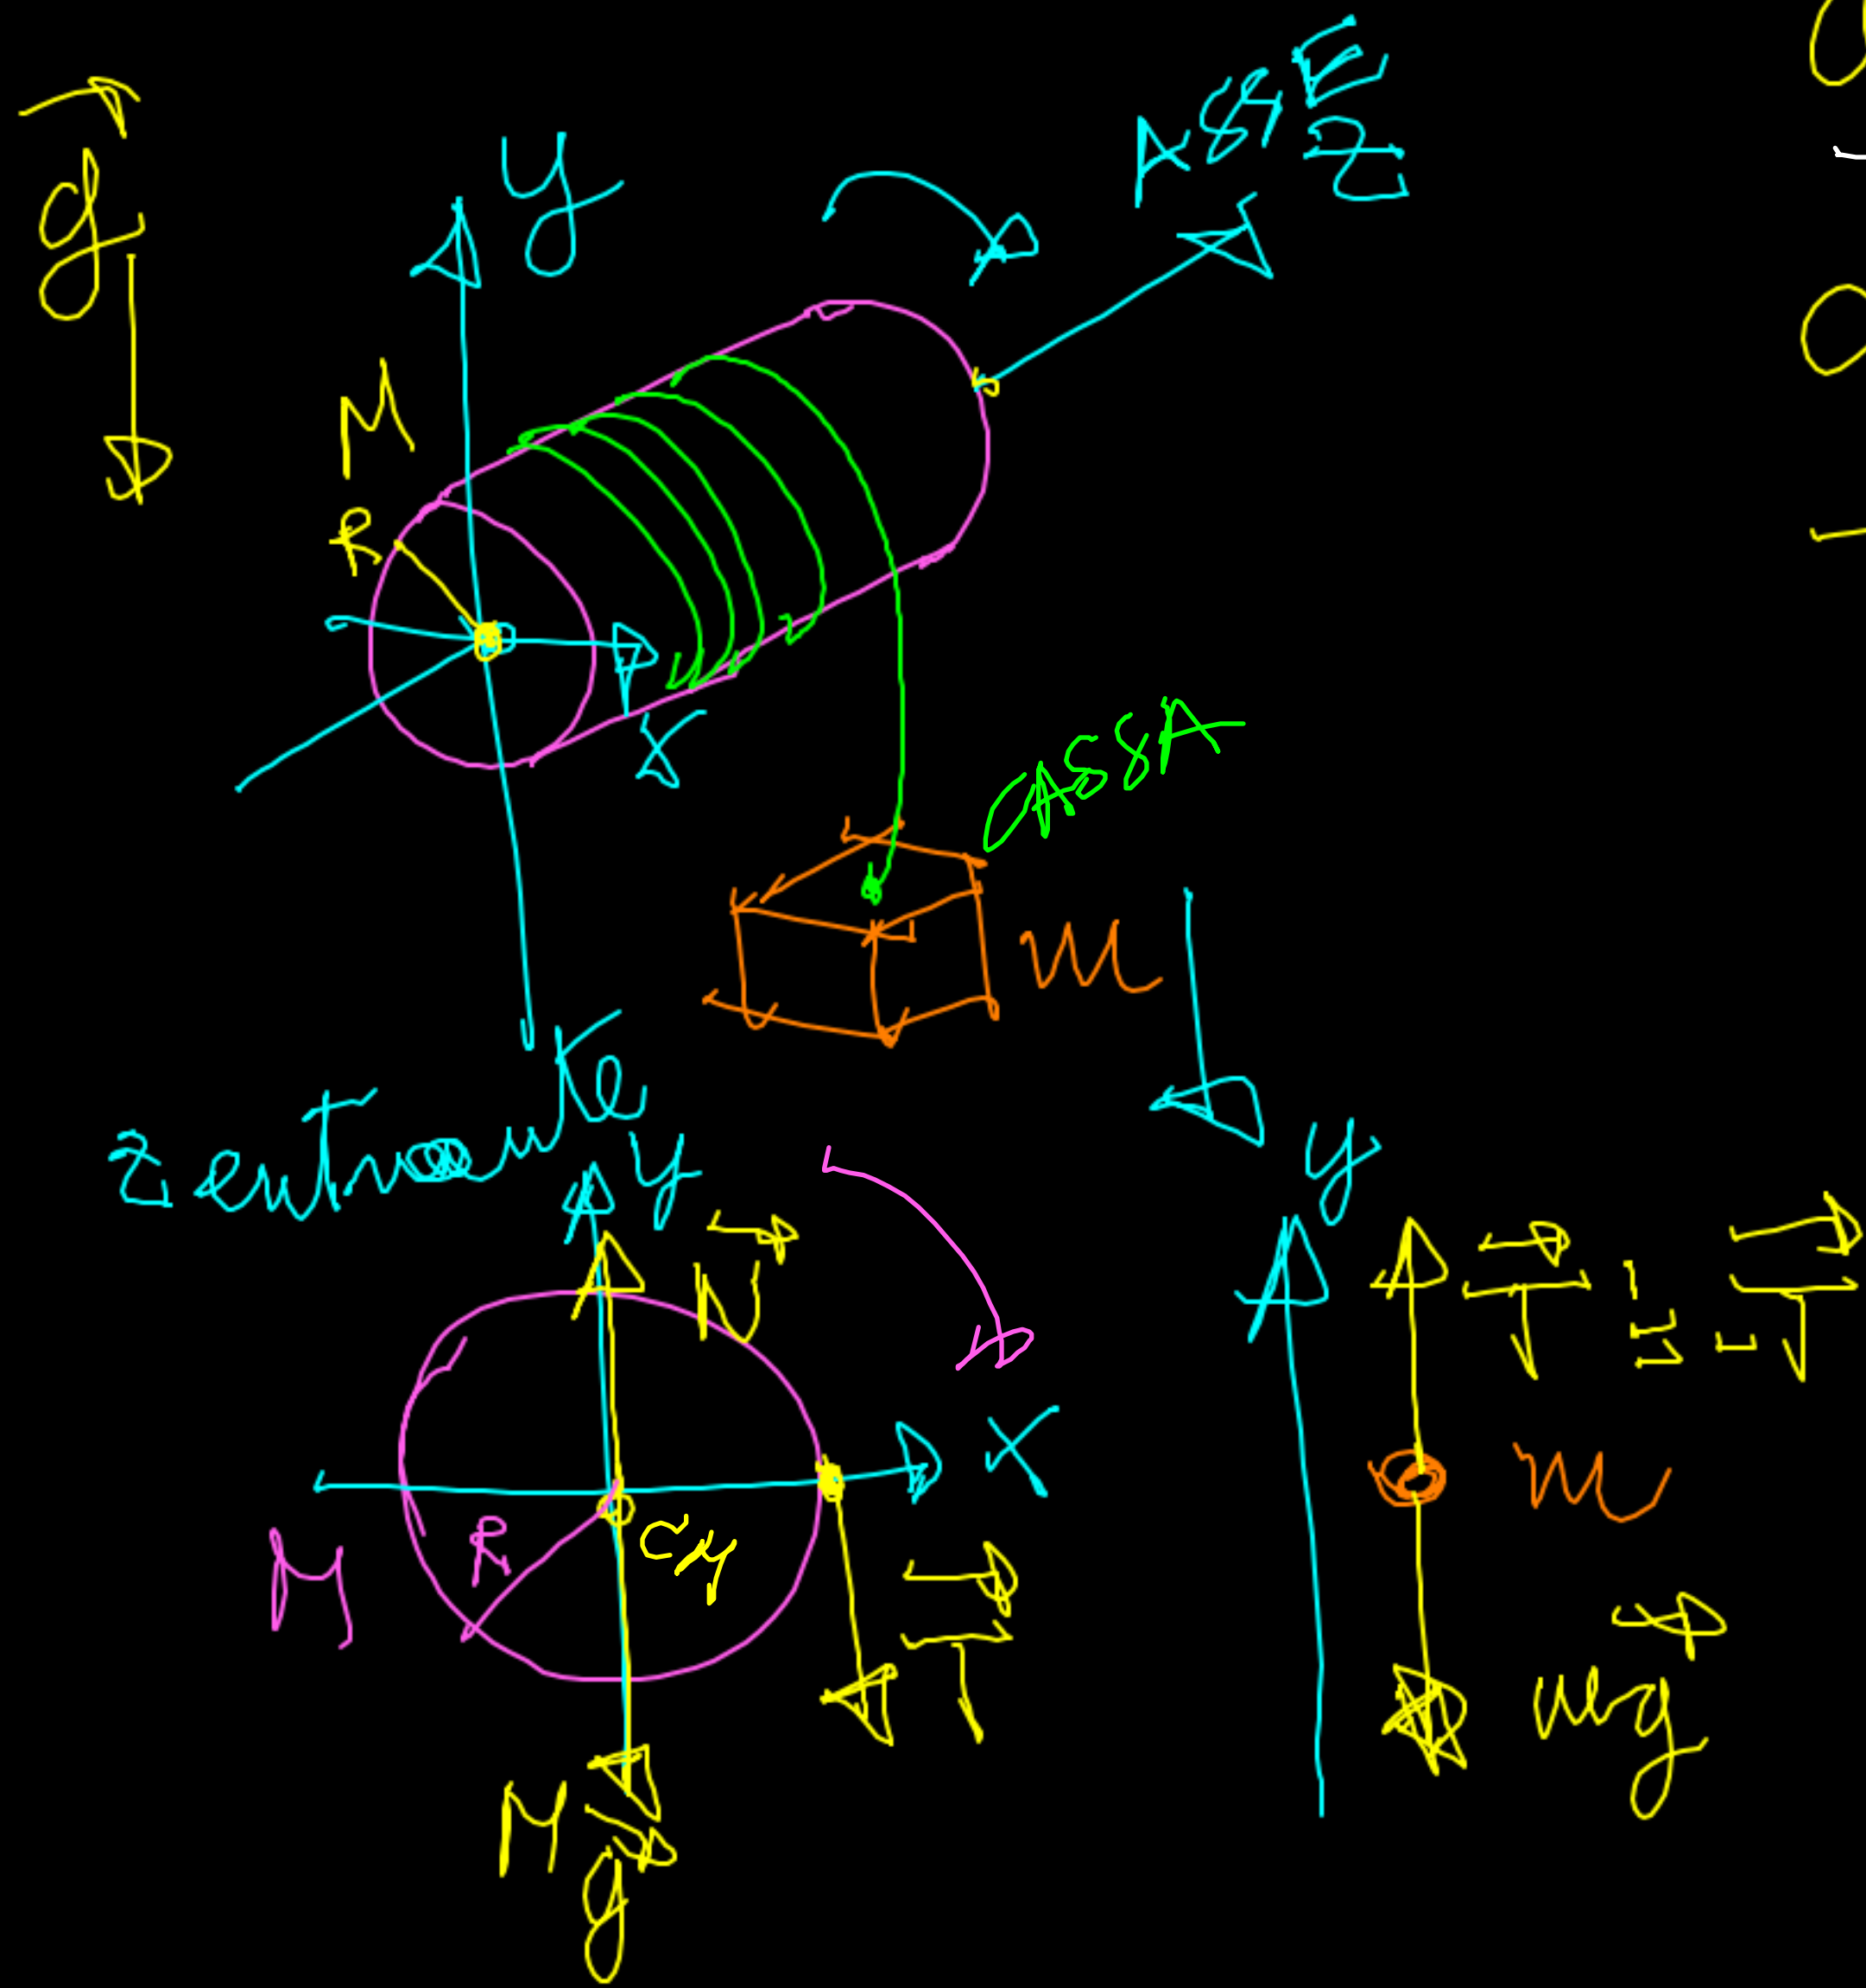 g
y
ASSE
Z
M
R
X
CASSA
m
Z entrante
y
N
y
T = -T
X
m
M
R
CM
T
mg
Mg